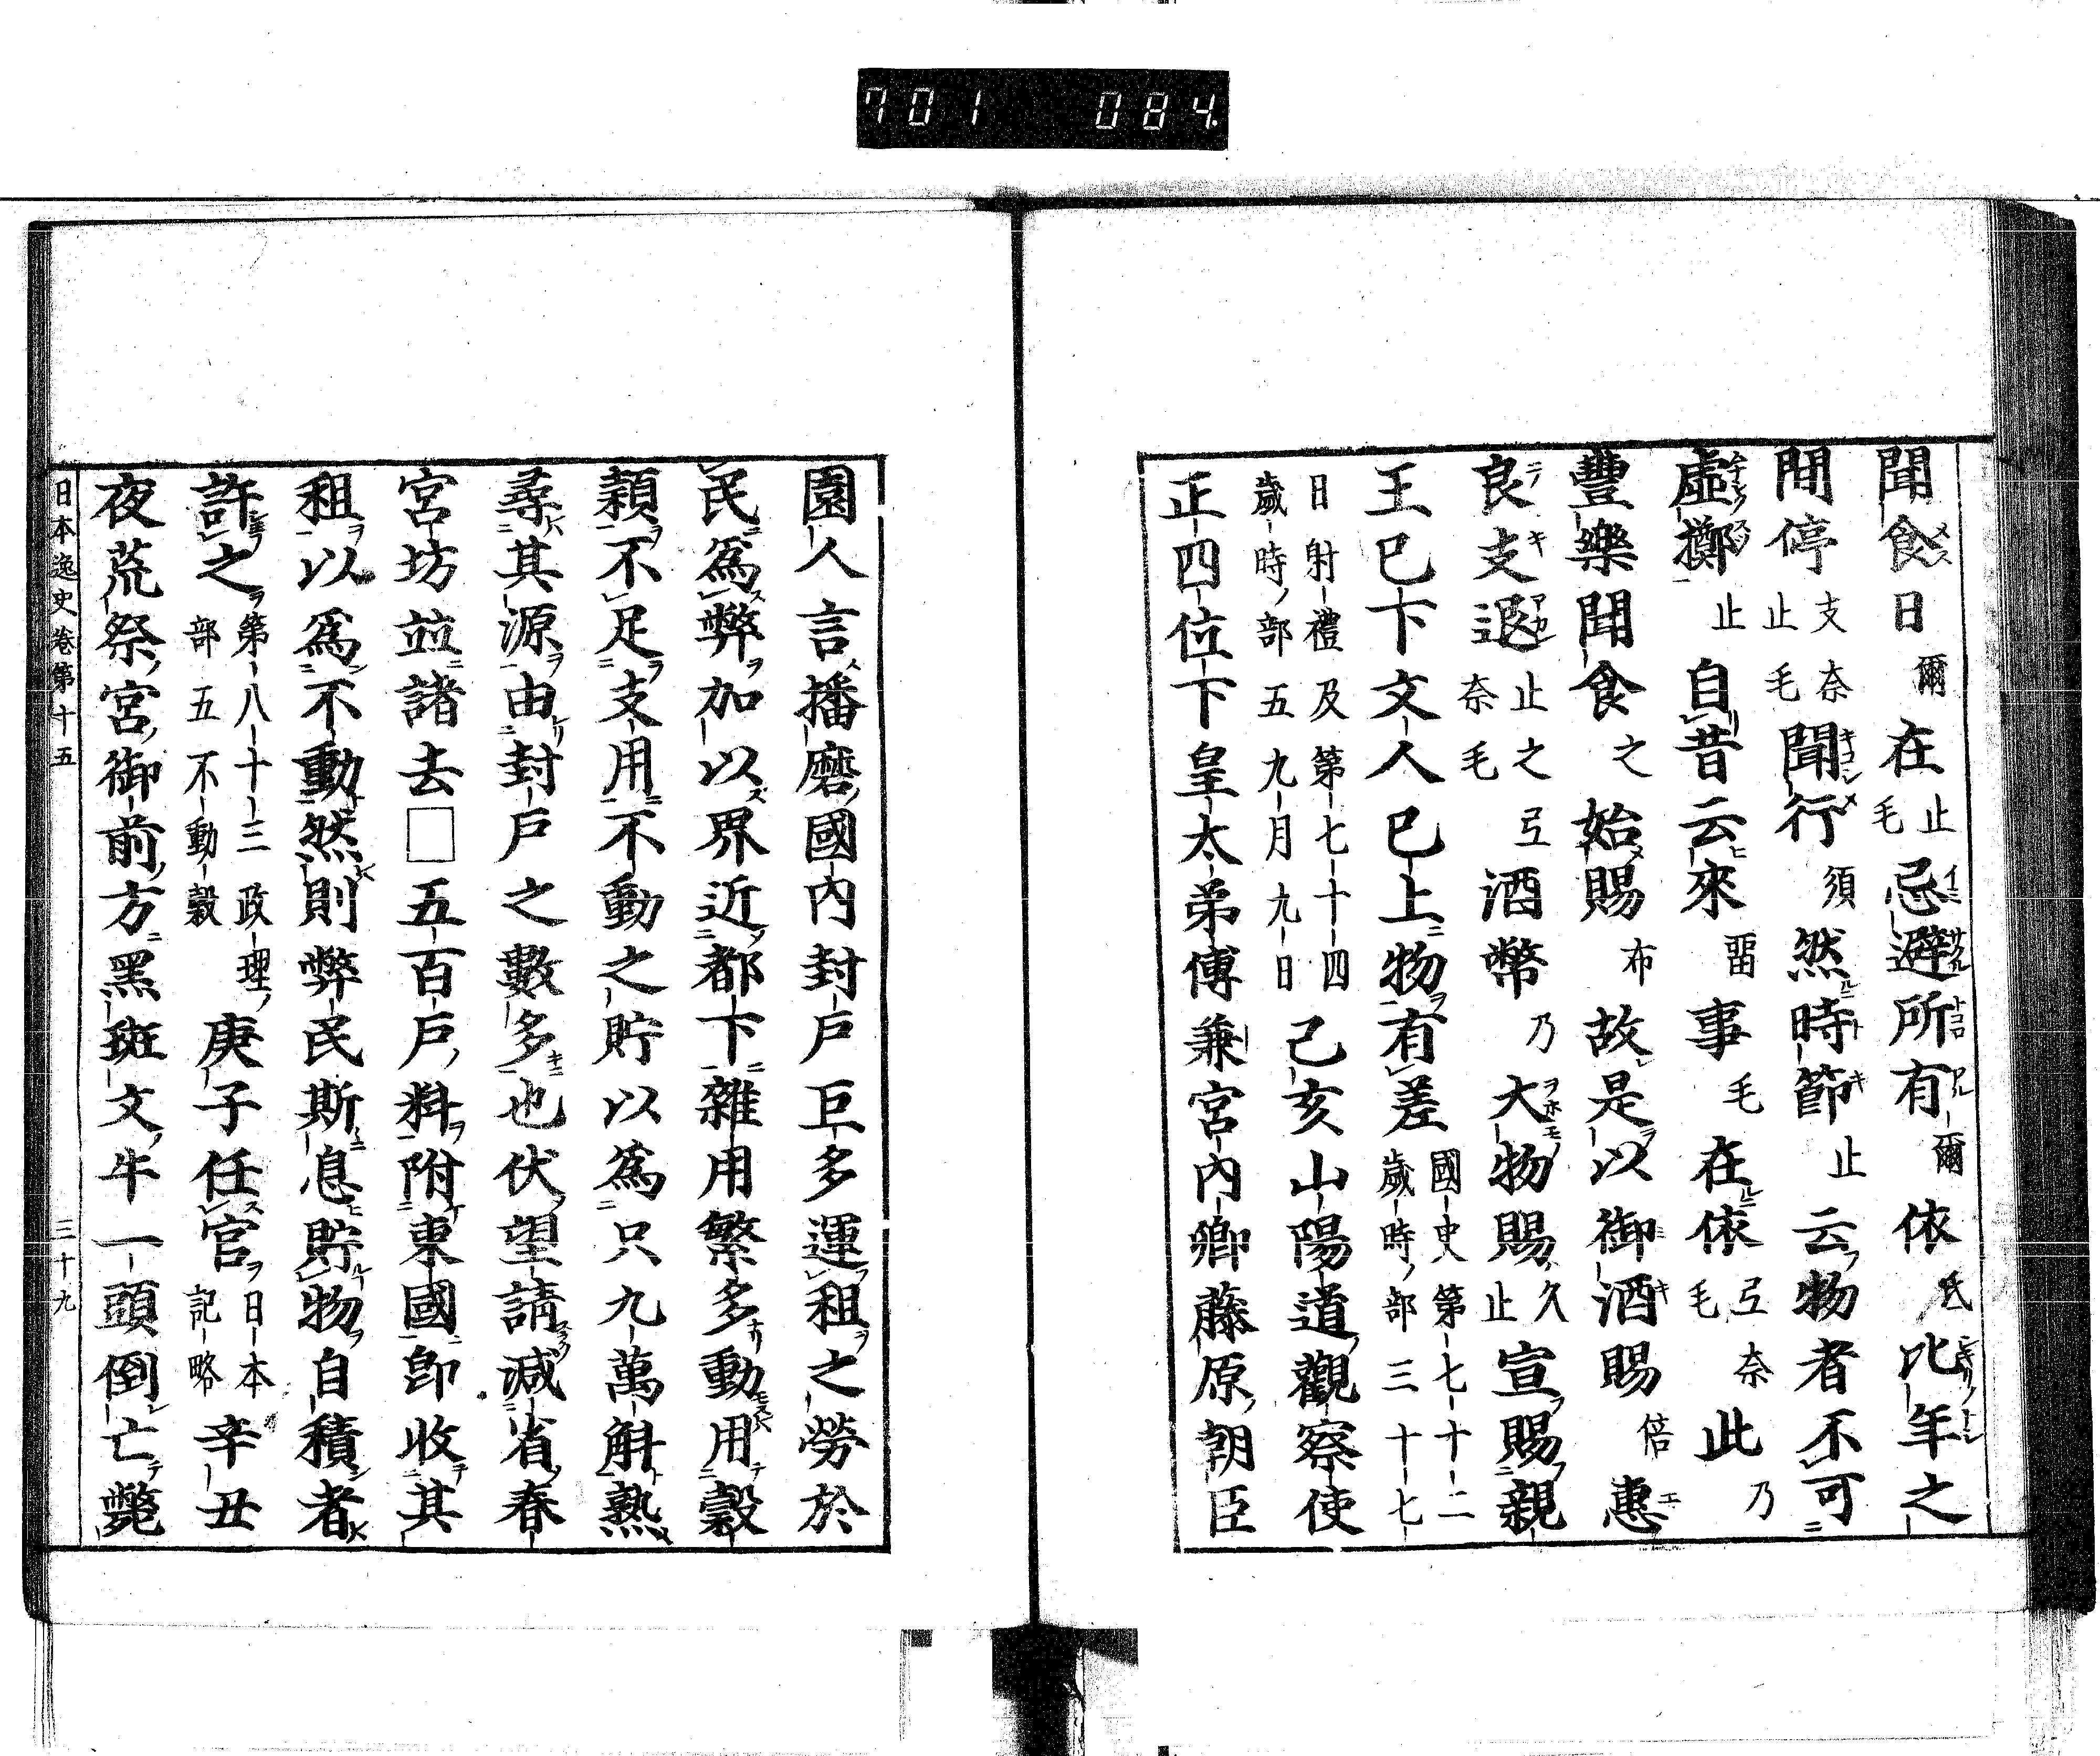 701 084
聞食日爾在止毛忌避所有爾依氐比年之
間停支奈止毛聞行須然時節止云物者不可
虛擲止自昔云來畱事毛在依弖奈毛此乃
豐樂聞食之始賜布故是以御酒賜倍惠
良支退止之奈毛弖酒幣乃大物賜久止宣賜親
王已下文人已上物有差國史第七十二歲時部三十七
日射禮及第七十四歲時部五九月九日己亥山陽道觀察使
正四位下皇太弟傅兼宮內卿藤原朝臣
園人言播磨國內封戶巨多運租之勞於
民爲弊加以界近都下雜用繁多動用穀
穎不足支用不動之貯以爲只九萬斛熟
尋其源由封戶之數多也伏望請減省春
宮坊竝諸去□五百戶料附東國卽收其
租以爲不動然則弊民斯息貯物自積者
許之第八十三政理部五不動穀庚子任官日本記略辛丑
夜荒祭宮御前方黑斑文牛一頭倒亡斃
日本逸史卷第十五 三十九